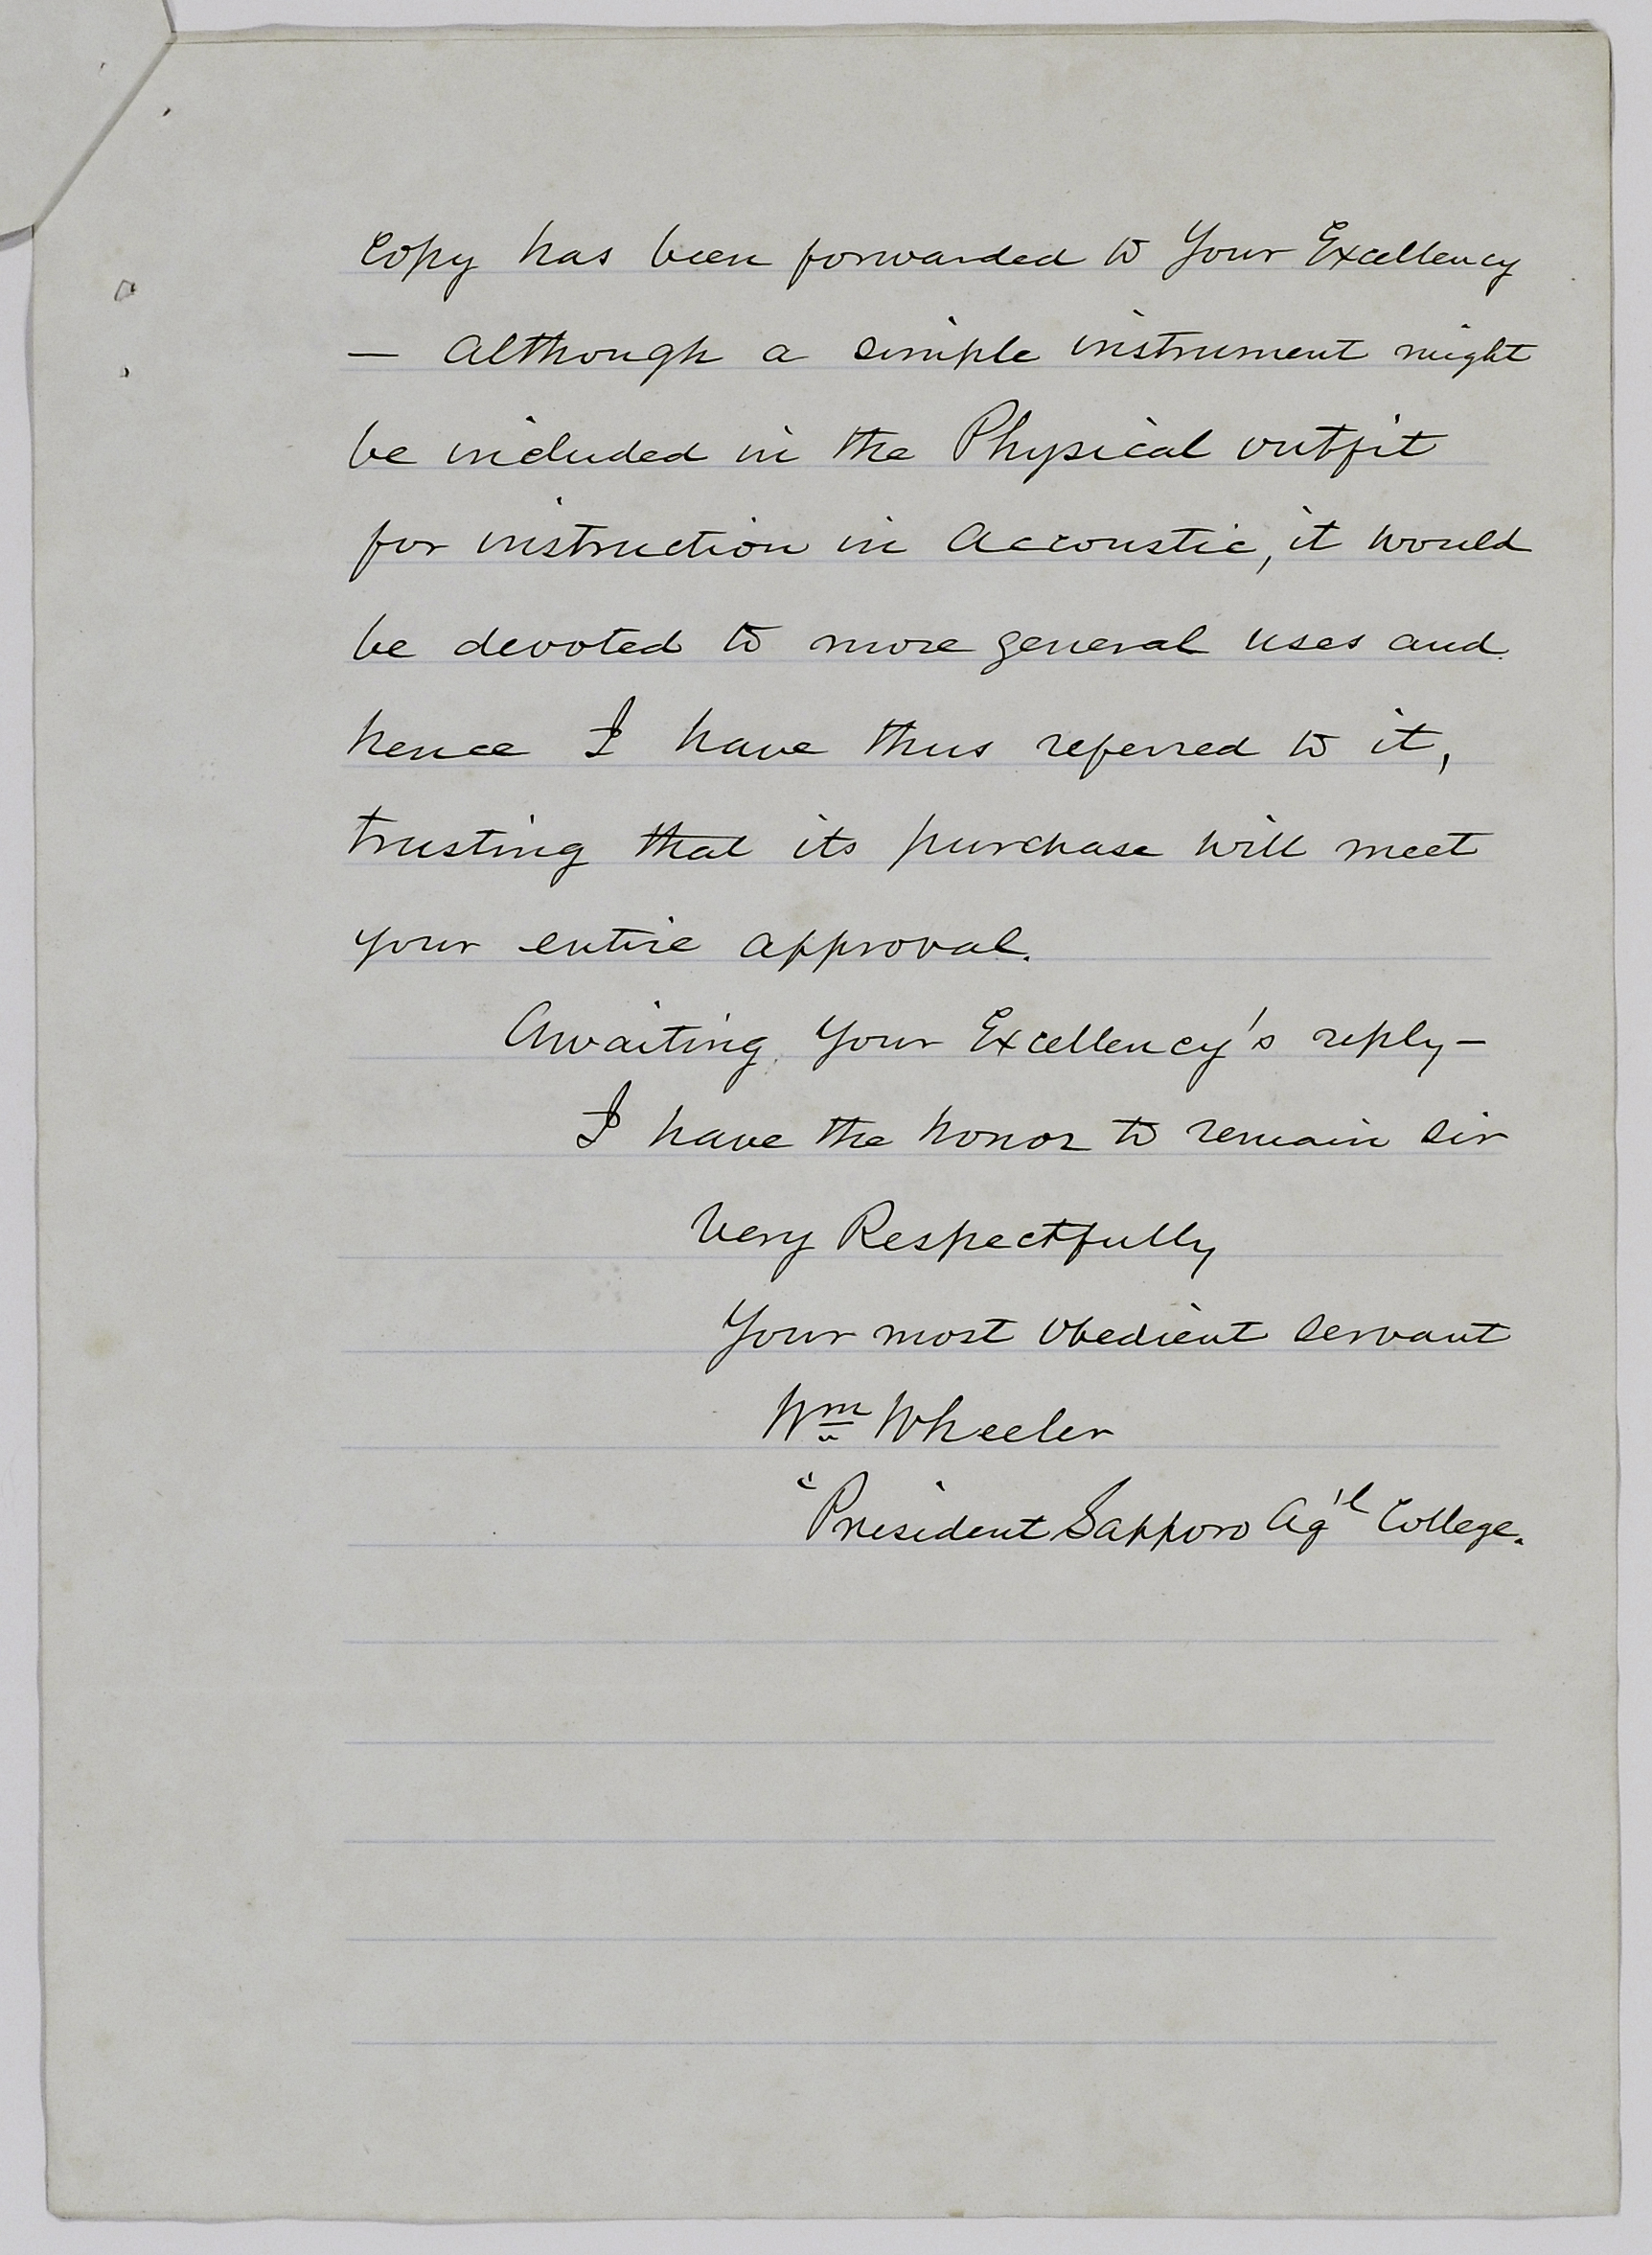 Copy has been forwarded to Your Excellency
— Although a simple instrument might
be included in the Physical outfit
for instruction in Accoustic, it would
be devoted to more general uses and
hence I have thus referred to it,
trusting that its purchase will meet
your entire approval.
Awaiting Your Excellency's reply—
I have the honor to remain Sir
Very Respectfully
Your most obedient servant
Wm Wheeler
President Sapporo Ag'l College.